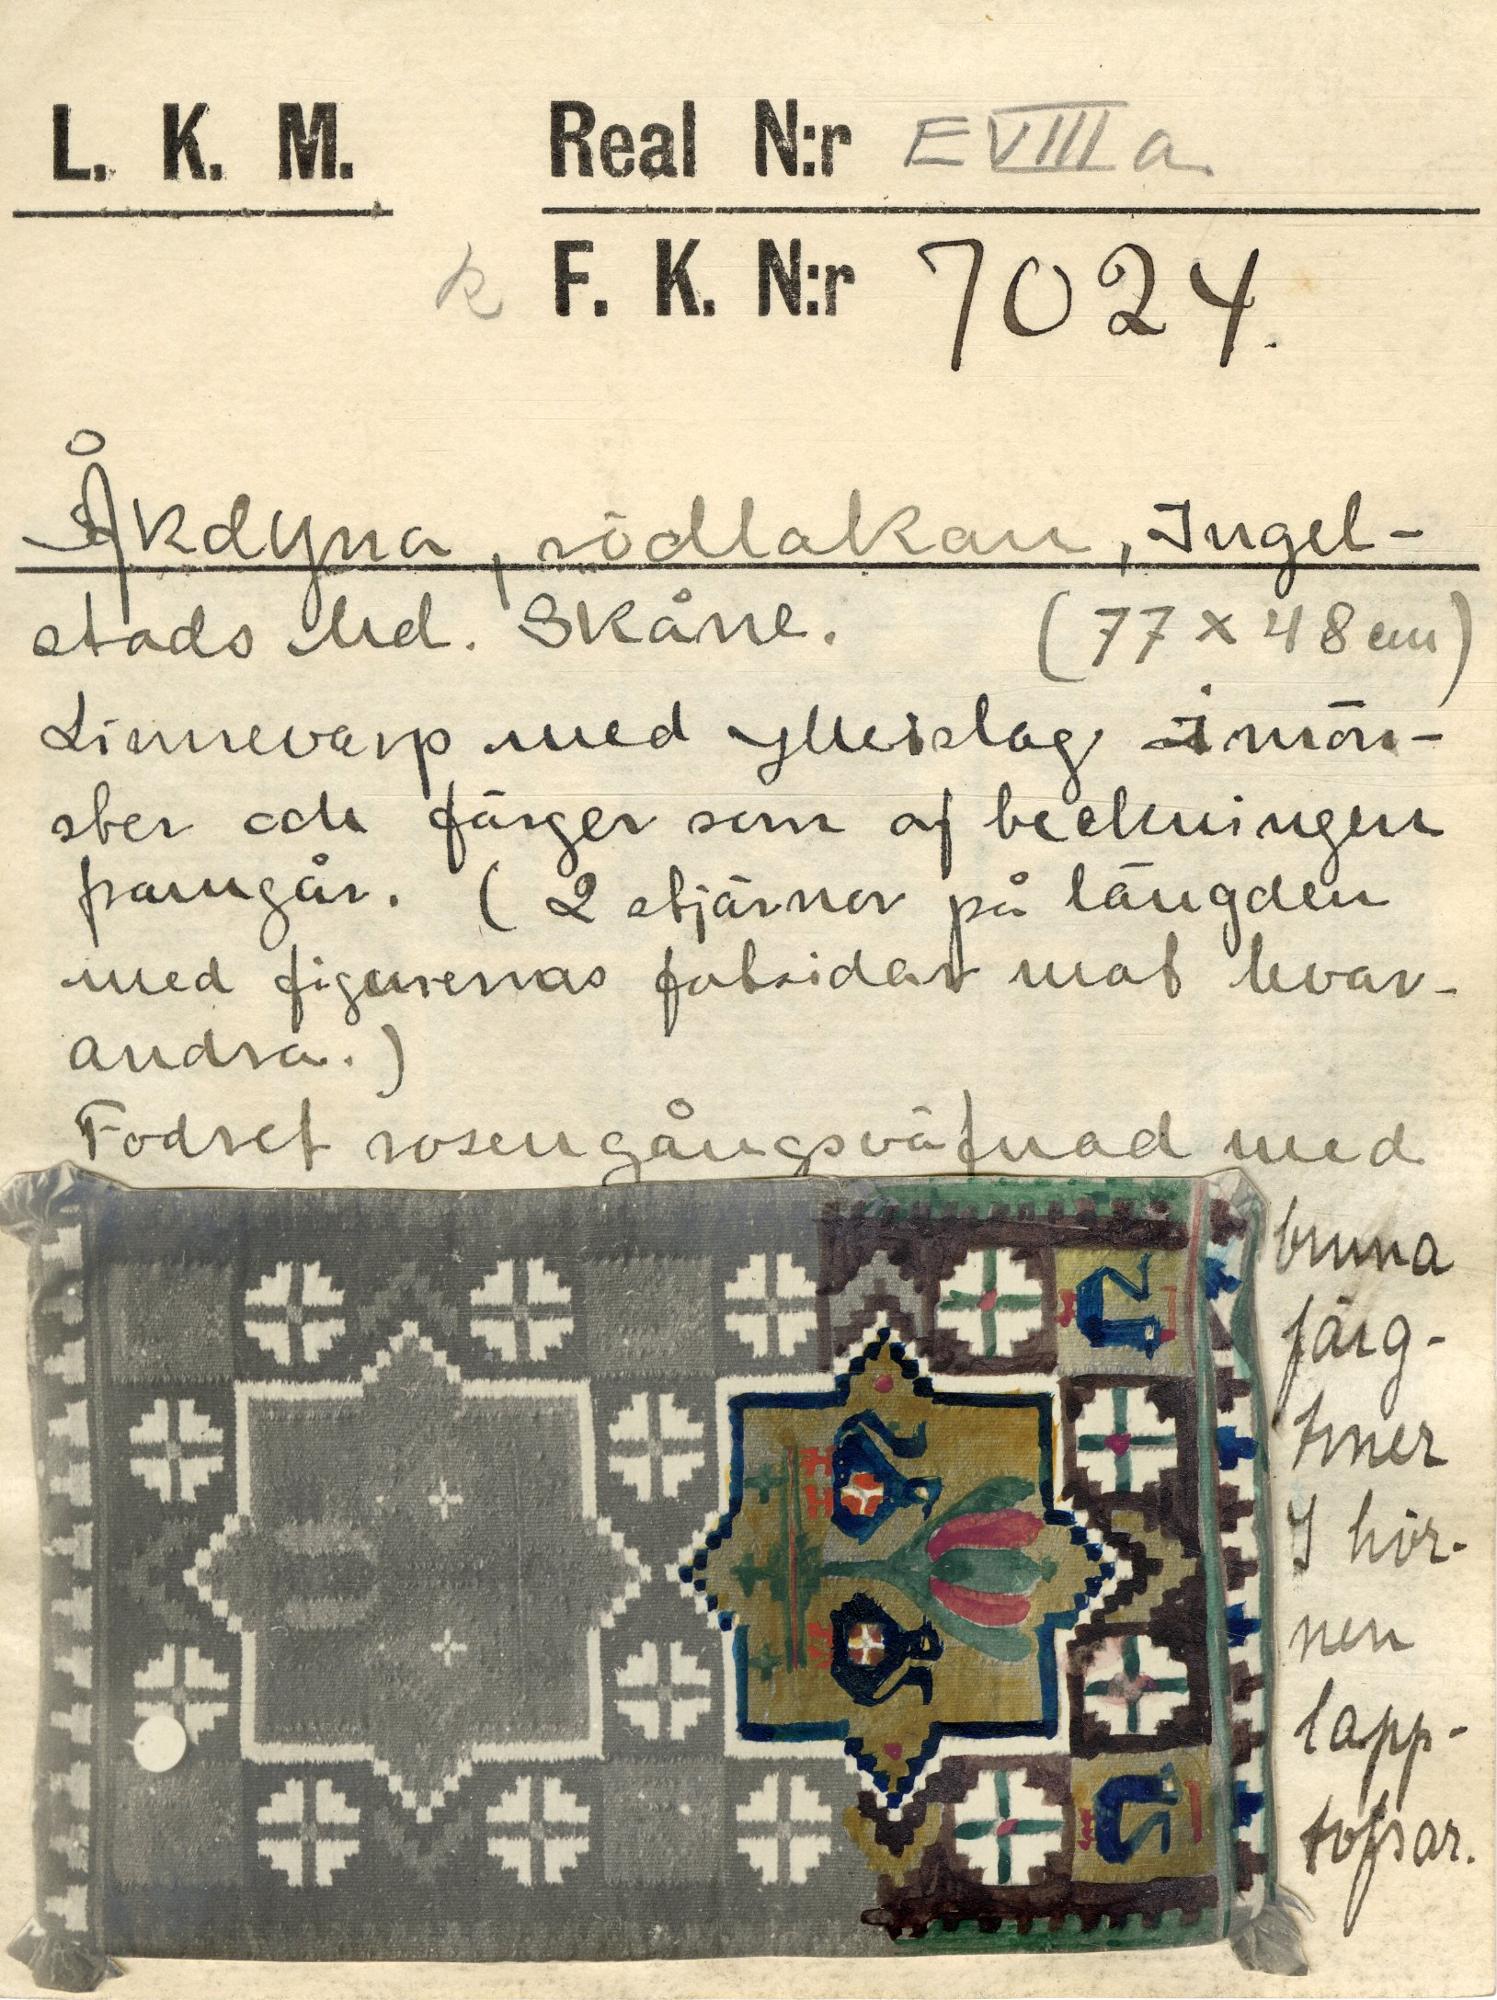 L. K. M.
Real N:r E VIII a.
k F. K. N:r 7024.
Åkdyna, rödlakan, Ingel-
stads hd. Skåne. (77 x 48 cm)
Linnevarp med ylleislag i mön-
ster och färger som af teckningen
framgår. (2 stjärnor på längden
med figurernas fotsidar mot hvar-
andra.)
Fodret rosengångsväfnad med
bruna
färg-
toner
I hör-
nen
lapp-
tofsar.